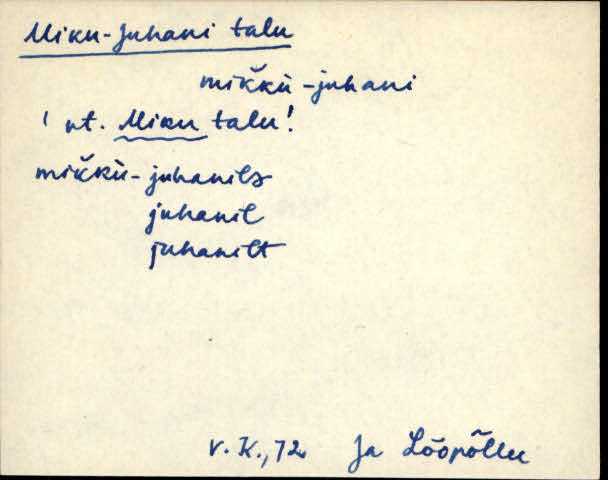 Miku-Juhani talu
mik̆k̆ù-juhani
' vt. Miku talu!
mik̆k̆ù-juhanils
juhanil
juhanilt
V.K., 72 Ja Lööpõllu